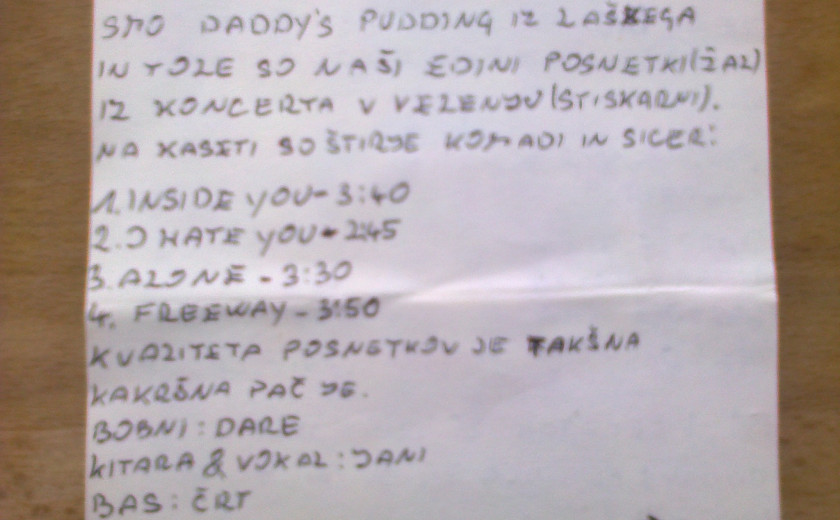 SMO DADDY'S PUDDING IZ LAŠKEGA
IN TOLE SO NAŠI EDINI POSNETKI (ŽAL)
IZ KONCERTA V VELENJU (STISKARNI).
NA KASETI SO ŠTIRJE KOMADI IN SICER:
1. INSIDE YOU - 3:40
2. I HATE YOU - 2:45
3. ALONE - 3:30
4. FREEWAY - 3:50
KVALITETA POSNETKOV JE TAKŠNA
KAKRŠNA PAČ JE.
BOBNI: DARE
KITARA & VOKAL: JANI
BAS: ČRT